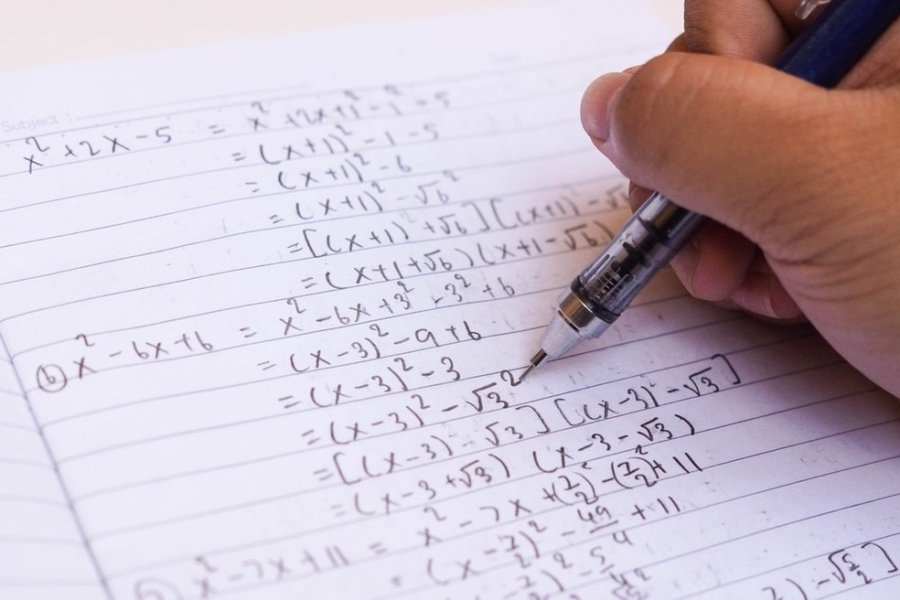 Subject:
x² + 2x - 5 = x² + 2x + 1² - 1² - 5
= (x+1)² - 1 - 5
= (x+1)² - 6
= (x+1)² - √6²
= [(x+1) + √6] [(x+1) - √6
= (x+1+√6) (x+1-√6)
(b) x² - 6x + 6 = x² - 6x + 3² - 3² + 6
= (x-3)² - 9 + 6
= (x-3)² - 3
= (x-3)² - √3²
= [(x-3) - √3] [(x-3) - √3]
= (x-3+√3) (x-3-√3)
x² - 7x + 11 = x² - 7x + (7/2)² - (7/2)² + 11
= (x - 7/2)² - 49/4 + 11